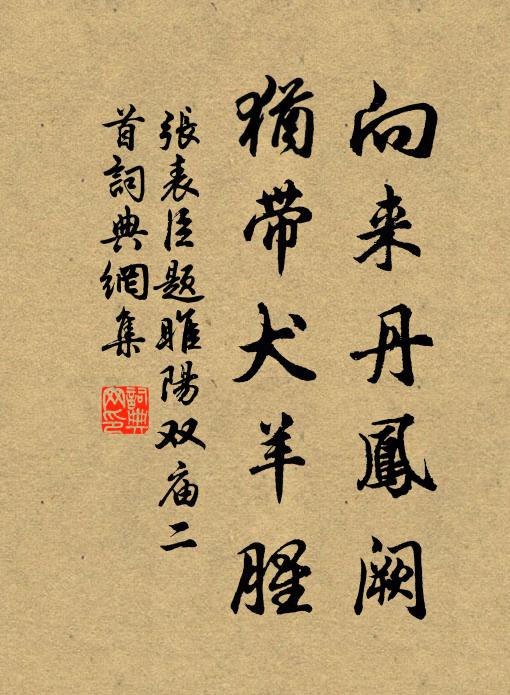 向来丹鳳闕
猶帶犬羊腥
張表臣題睢陽双庙二
首詞典網集
詞典
网印